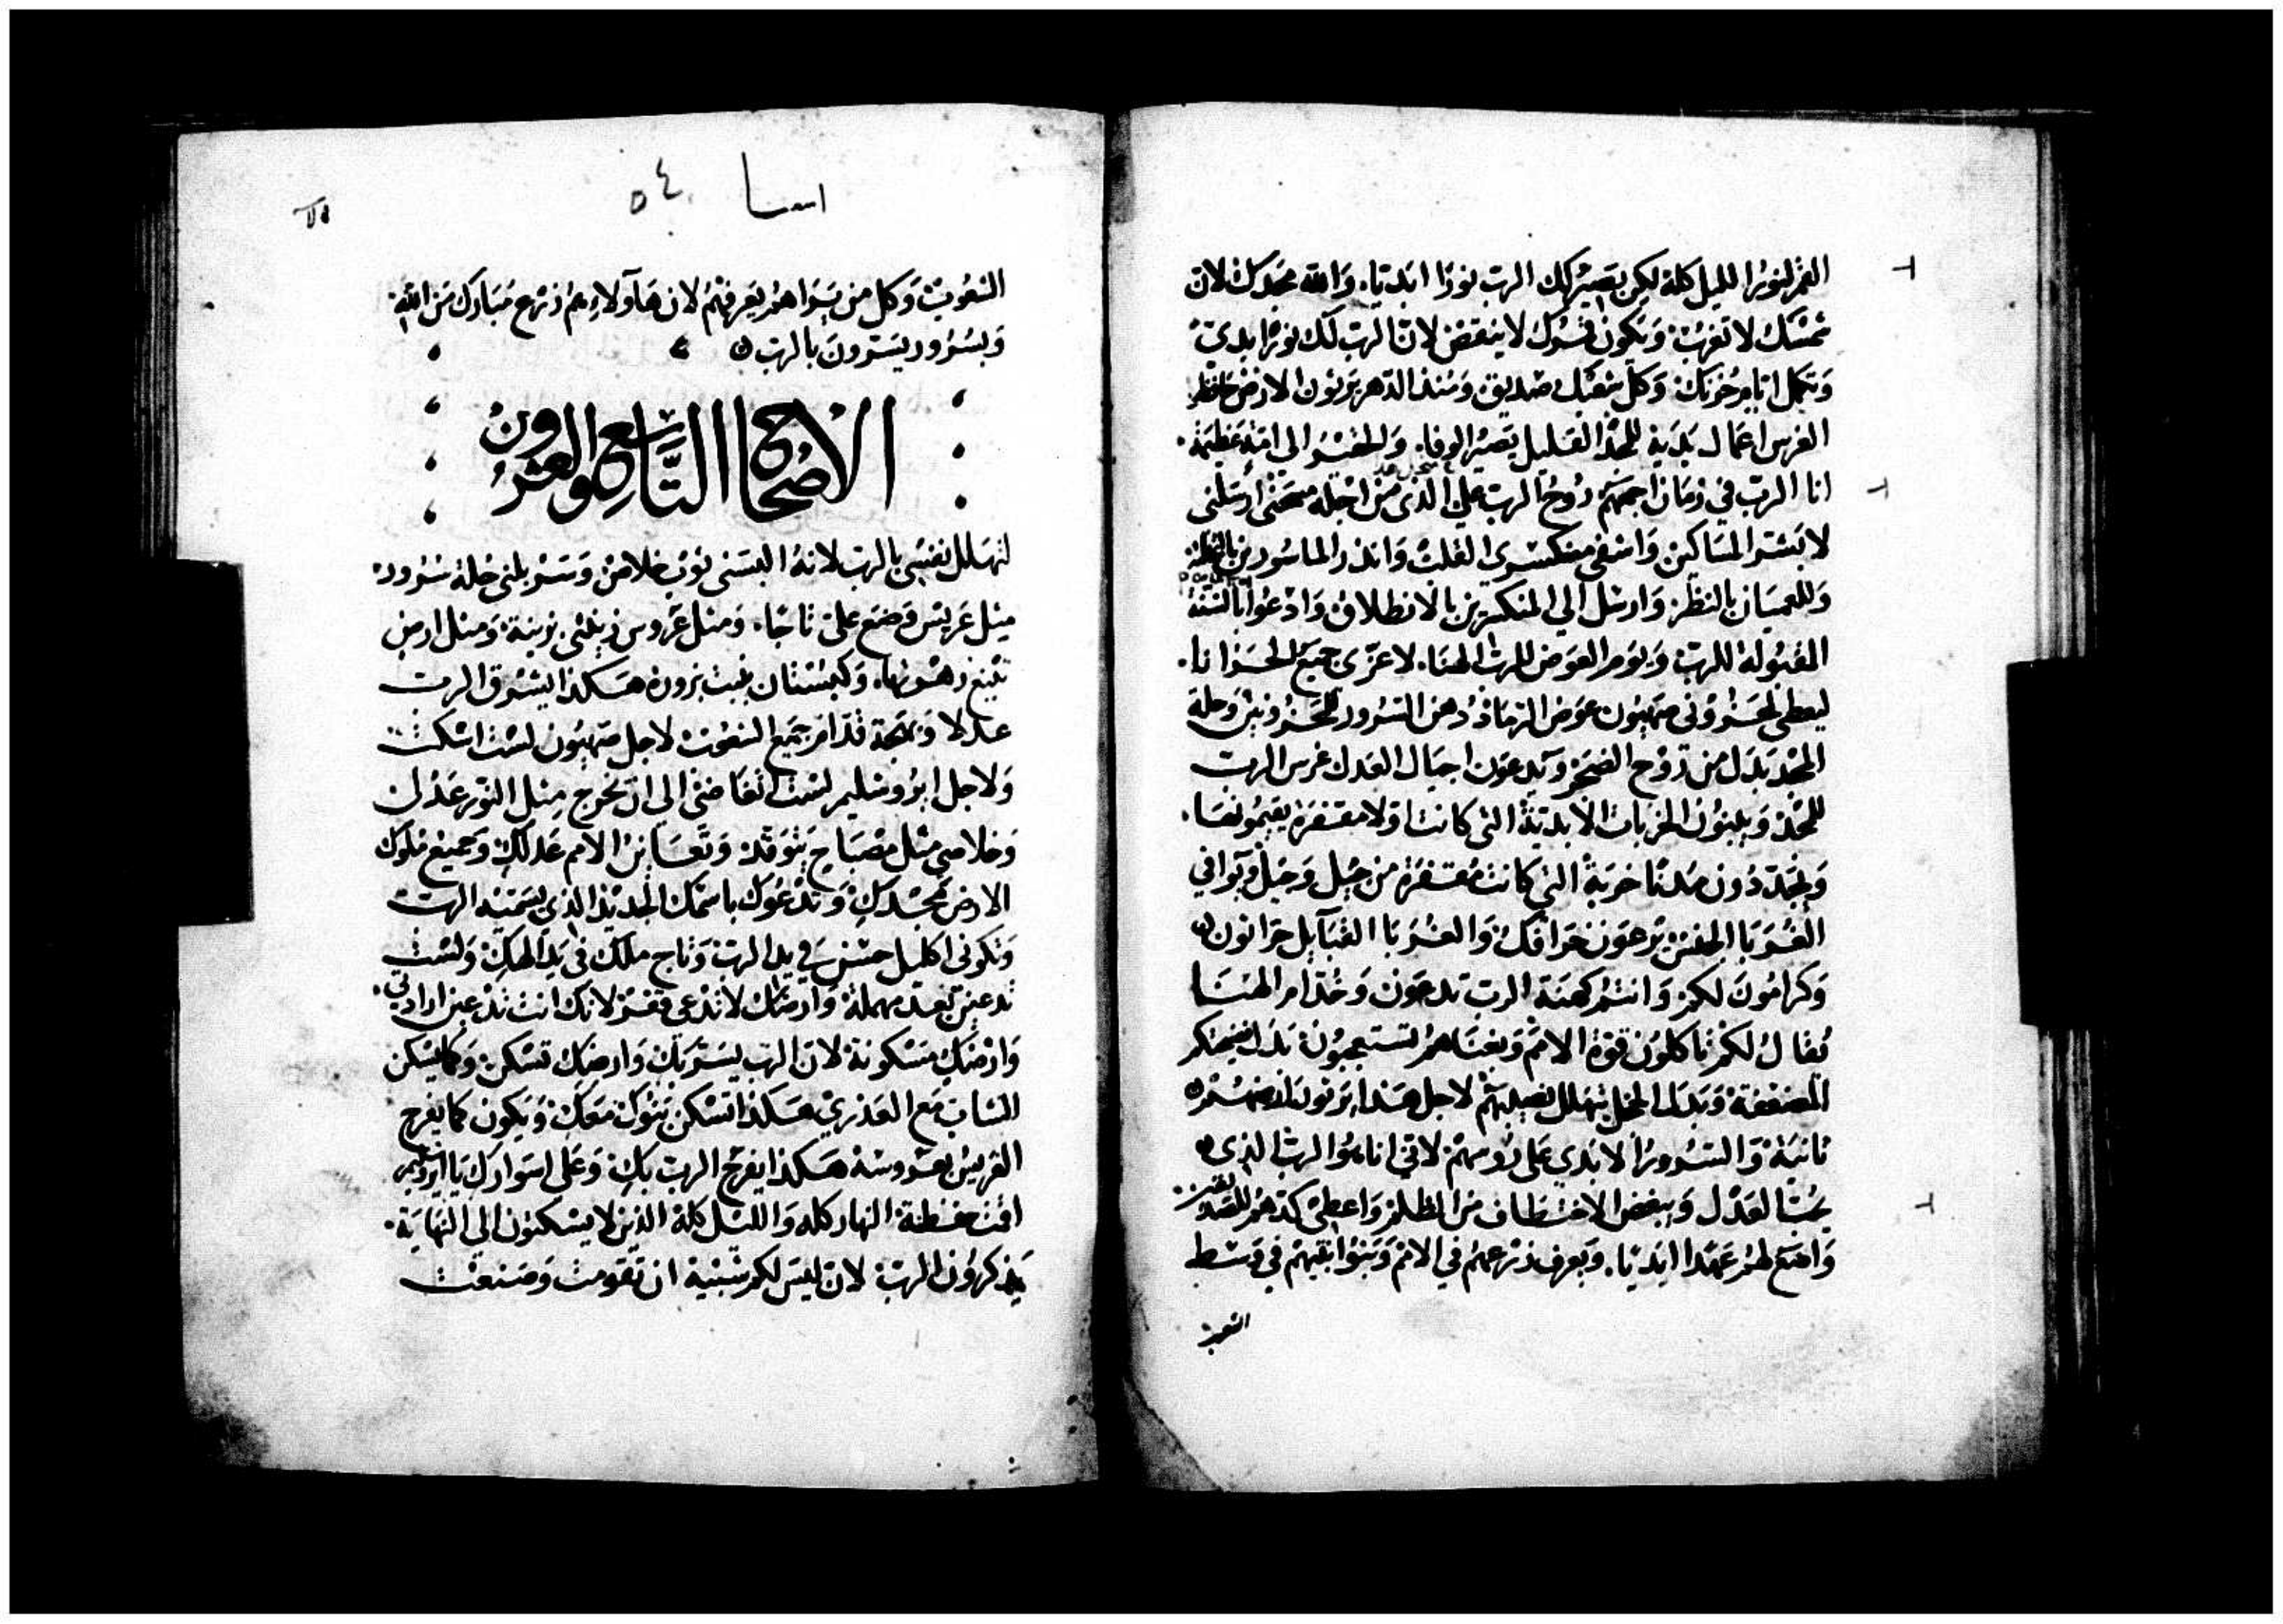 القمر لنورا الليل كلة لكن يصير لك الرب نورا ابديا. والله مجدك لان
شمسك لا تغرب ويكون قمرك لا ينقص لان الرب لك نورا ابدي
وتكمل ايام حزنك وكل شعبك صديق ومنذ الدهر يرثون الارض
الغرس اعمال يديه للمجد القليل يصير الوفا. والحقير الى امة عظيمة.
انا الرب في زمان اجمعهم روح الرب علي الذي من اجله مسحني ارسلني
لابشر المساكين واشفى منكسرى القلب وانذر الماسورين
وللعميان بالنظر وارسل الي المنكسرين بالانطلاق وادعوا السنة
المقبولة للرب ويوم العوض للرب الهنا. لاعزى جميع الحزانا.
ليعطى لحزونى صهيون عوض الرماد دهن السرور للحزونين وحلة
المجد بدل من روح الضجر ويدعون اجيال العدل غرس الرب
للمجد ويبنون الخربات الابدية التى كانت اولا مقفرة يقيمونها.
ويجددون مدنا خربة التي كانت مقفرة من جيل وجيل ويوافي
الغربا الجنس يرعون خرافك والغربا القبايل حراثون
وكرامون لكم وانتم كهنة الرب تدعون وخدام الهنا
يقال لكم تاكلون قوة الامم وبغناهم تستعجبون بدل خزيتكم
المضعفة وبدل الخجل يتهلل نصيبهم لاجل هذا يرثون ارضهم
ثانية والسرور الابدي على روسهم لاني انا هو الرب الذي
يحب العدل ويبغض الاختطاف من الظلم واعطى كدهم للصديقين
واضع لهم عهدا ابديا. ويعرف زرعهم في الامم وبنوا بنيهم في وسط
الشعوب
اسعيا ٥٤
الشعوب وكل من يراهم يعرفهم لان هاولاء هم زرع مبارك من الله
وبسرور يسرون بالرب
الاصحاح التاسع والعشرون
لتهلل نفسي بالرب لانه البسنى ثوب خلاص وسربلنى حلة سرور
مثل عريس وضع على تاجا. ومثل عروس زينني بزينة ومثل ارض
تنبع زهورها. وكبستان ينبت بزوره هكذا يشرق الرب
عدلا وبهجة قدام جميع الشعوب لاجل صهيون لست اسكت
ولاجل ايروشليم لست اتغاضى الي ان يخرج مثل النور عدل
وخلاصي مثل مصباح يتوقد وتعاين الامم عدلك وجميع ملوك
الارض مجدك وتدعوك باسمك الجديد الذي يسميه الرب
وتكونى اكليل حسن في يد الرب وتاج ملك في يد الهك ولست
تدعين بعد مهملة وارضك لا تدعى قفر لانك انت تدعين ارادتي.
وارضك مسكونة لان الرب يسر بك وارضك تسكن وكما يسكن
الشاب مع العذرى هكذا تسكن بنوك معك ويكون كما يفرح
العريس بعروسه هكذا يفرح الرب بك وعلى اسوارك يا ايروشليم
اقمت حفظة النهار كله والليل كلة الذين لا يسكتون الى النهاية.
يذكرون الرب لان ليس لكم شبيه ان تقومت وصنعت